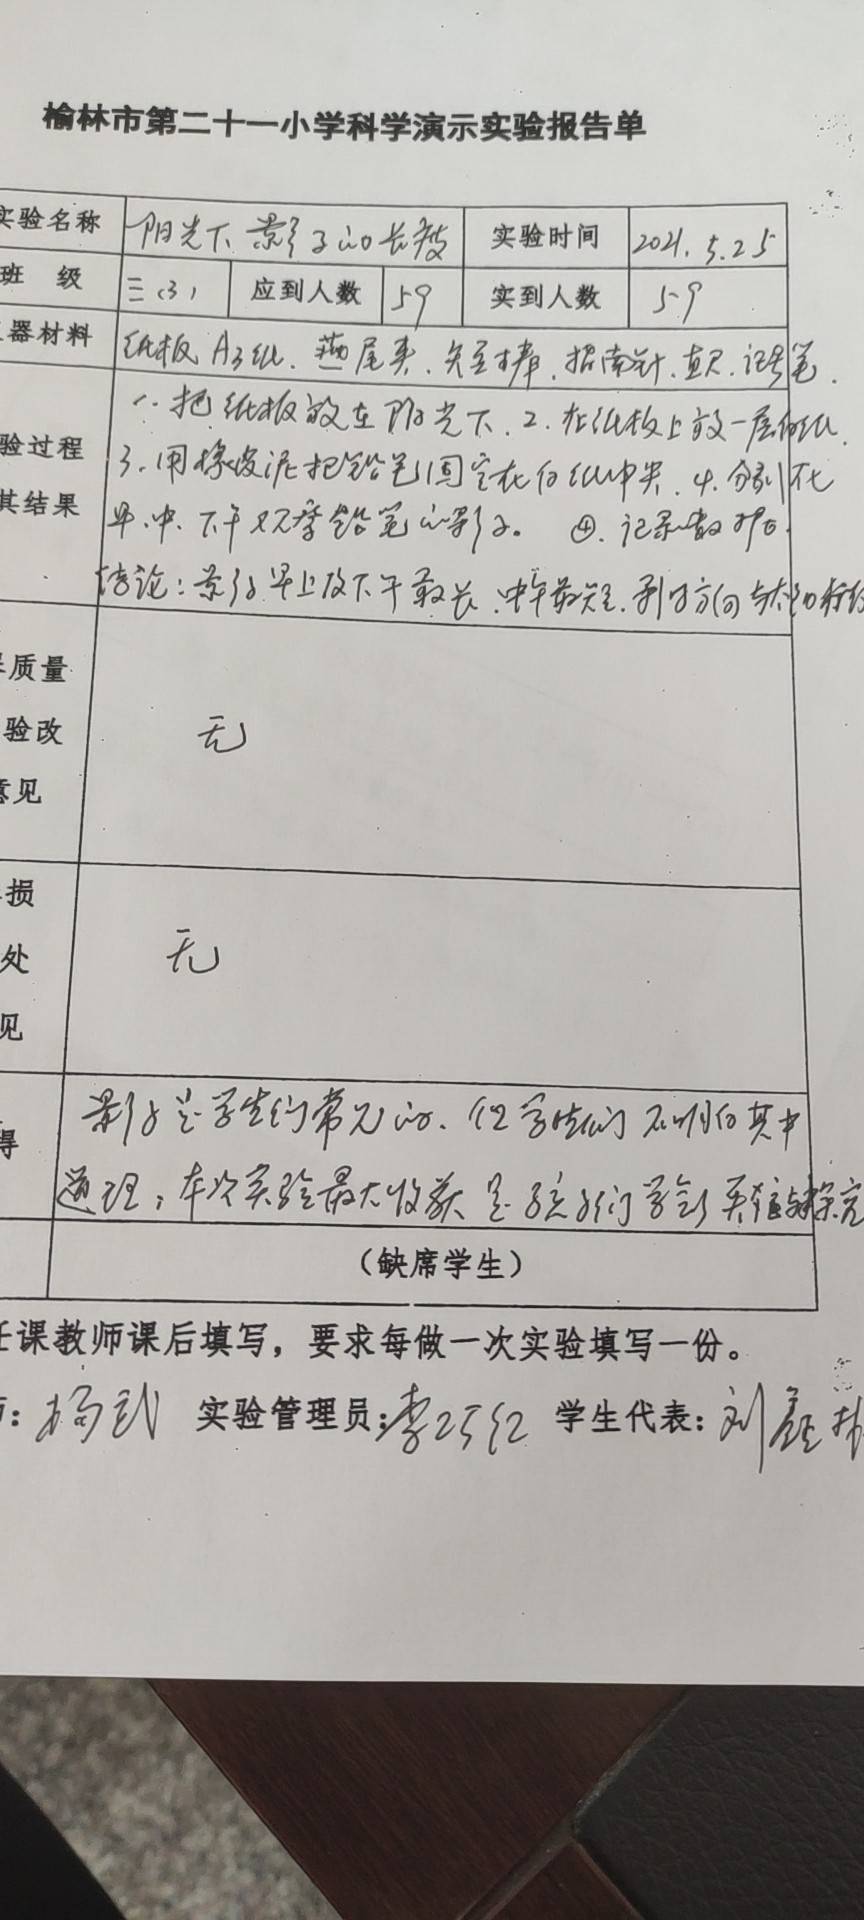 榆林市第二十一小学科学演示实验报告单
实验名称 阳光下影子的长短 实验时间 2021.5.25
班 级 三(3) 应到人数 59 实到人数 59
器材料 纸板 A3纸、燕尾夹、短棒、指南针、直尺、记号笔.
1. 把纸板放在阳光下. 2. 在纸板上放一层白纸.
验过程 3. 用橡皮泥把铅笔固定在白纸中央. 4. 分别在
其结果 早、中、下午观察铅笔的影子。 ④. 记录数据.
结论:影子早上及下午最长、中午最短.
质量
验改
意见
无
损
处
见
无
得
影子是学生们常见的、但学生们不明白其中
道理,本次实验最大收获是孩子们学会了
(缺席学生)
任课教师课后填写,要求每做一次实验填写一份。
实验管理员:李巧红 学生代表:刘